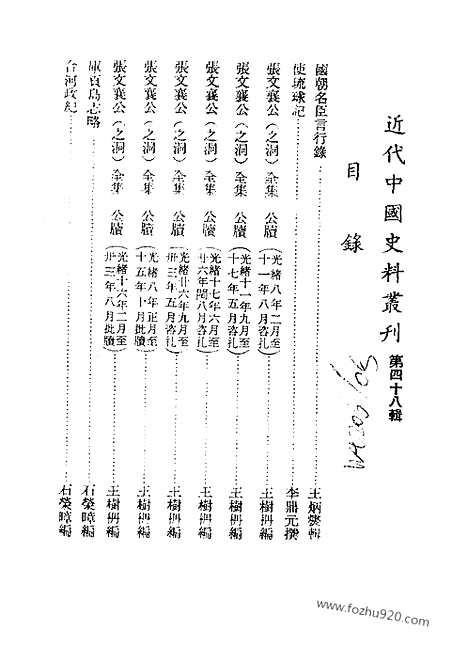 近代中國史料叢刊 第四十八輯
目錄
國朝名臣言行錄……王炳燮輯
使琉球記……李鼎元撰
張文襄公(之洞)全集 公牘(光緒八年二月至十一年八月咨札)……王樹枏編
張文襄公(之洞)全集 公牘(光緒十一年九月至十七年五月咨札)……王樹枏編
張文襄公(之洞)全集 公牘(光緒十七年六月至廿六年閏八月咨札)……王樹枏編
張文襄公(之洞)全集 公牘(光緒廿六年九月至卅三年五月咨札)……王樹枏編
張文襄公(之洞)全集 公牘(光緒八年正月至十五年十月批牘)……王樹枏編
張文襄公(之洞)全集 公牘(光緒十六年二月至卅三年八月批牘)……王樹枏編
庫頁島志略……石榮暲編
合河政紀……石榮暲編
www.fozhu920.com